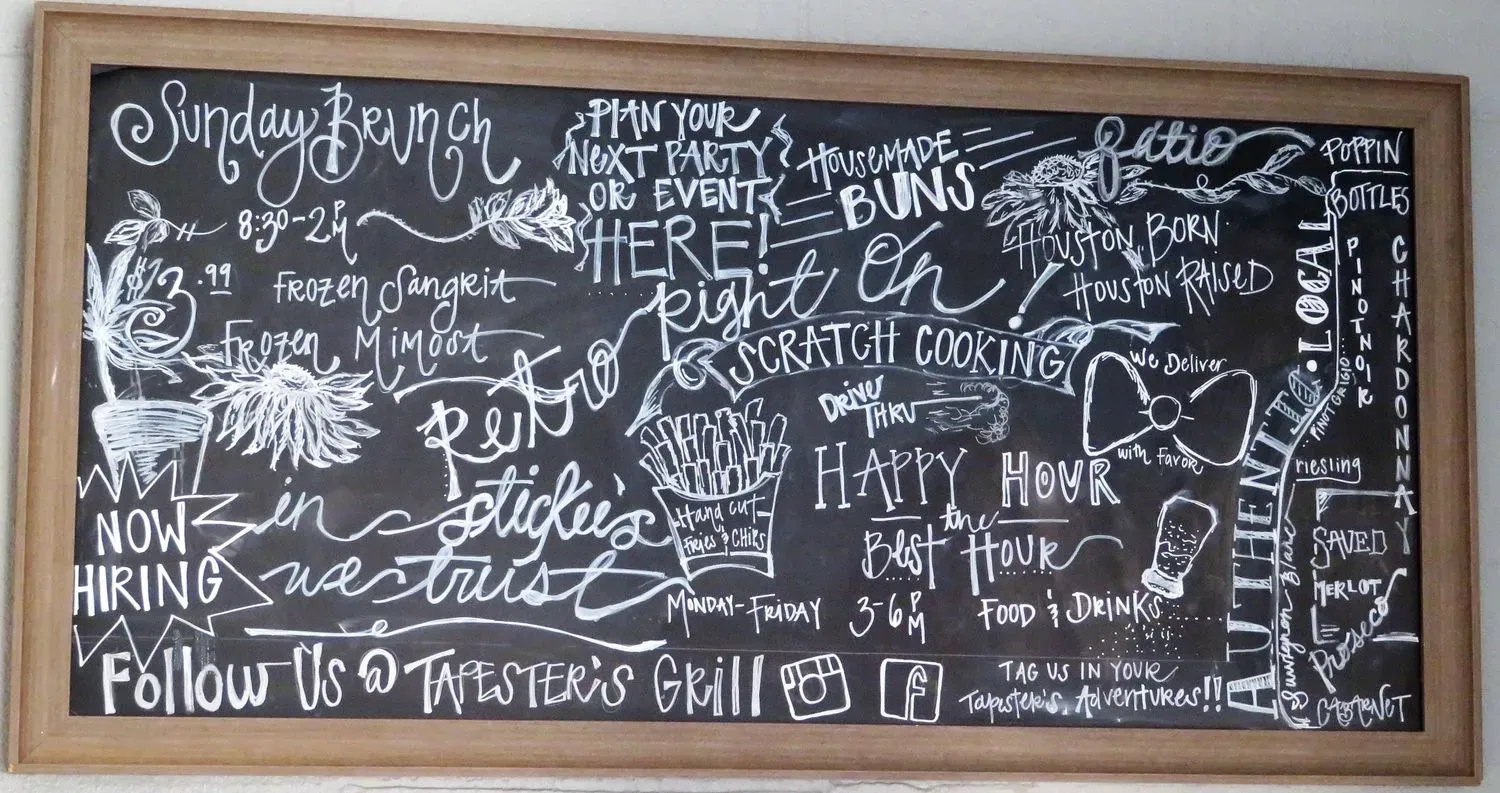 Sunday Brunch
8:30-2PM
$3.99
Frozen Sangria
Frozen Mimosa
PLAN YOUR
NEXT PARTY
OR EVENT
HERE!
HOUSEMADE
BUNS
Patio
HOUSTON BORN
HOUSTON RAISED
Right On
Retro
SCRATCH COOKING
DRIVE
THRU
We Deliver
with Favor
in stickers
we trust
Hand Cut
Fries & Chips
NOW
HIRING
HAPPY HOUR
the
Best HOUR
MONDAY-FRIDAY 3-6PM FOOD & DRINKS
Follow Us @ TAPESTER'S Grill
f
TAG US IN YOUR
Tapester's Adventures!!
AUTHENTIC • LOCAL
POPPIN
BOTTLES
PINOT NOIR
CHARDONNAY
PINOT GRIGIO
riesling
Sauvignon Blanc
SAVED
MERLOT
Prosecco
CABARNET